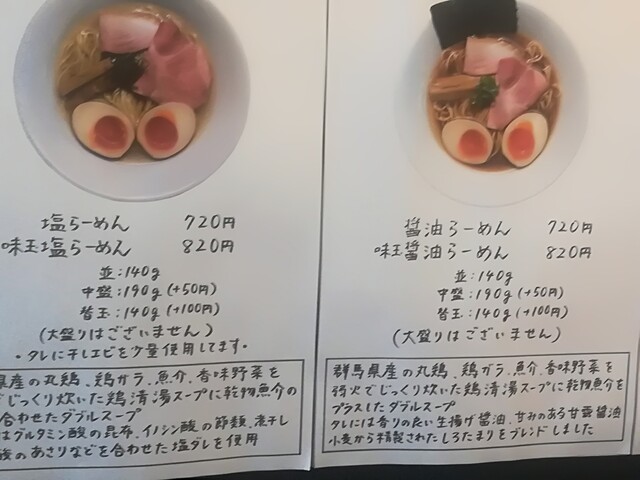 塩らーめん 720円
味玉塩らーめん 820円
並:140g
中盛:190g (+50円)
替玉:140g (+100円)
(大盛りはございません)
・タレに干しエビを少量使用してます・
県産の丸鶏、鶏ガラ、魚介、香味野菜を
でじっくり炊いた鶏清湯スープに乾物魚介の
合わせたダブルスープ
はグルタミン酸の昆布、イノシン酸の節類、煮干し
酸のあさりなどを合わせた塩ダレを使用
醤油らーめん 720円
味玉醤油らーめん 820円
並:140g
中盛:190g (+50円)
替玉:140g (+100円)
(大盛りはございません)
群馬県産の丸鶏、鶏ガラ、魚介、香味野菜を
弱火でじっくり炊いた鶏清湯スープに乾物魚介を
プラスしたダブルスープ
タレには香りの良い生揚げ醤油、甘みのある甘露醤油
小麦から精製されたしろたまりをブレンドしました